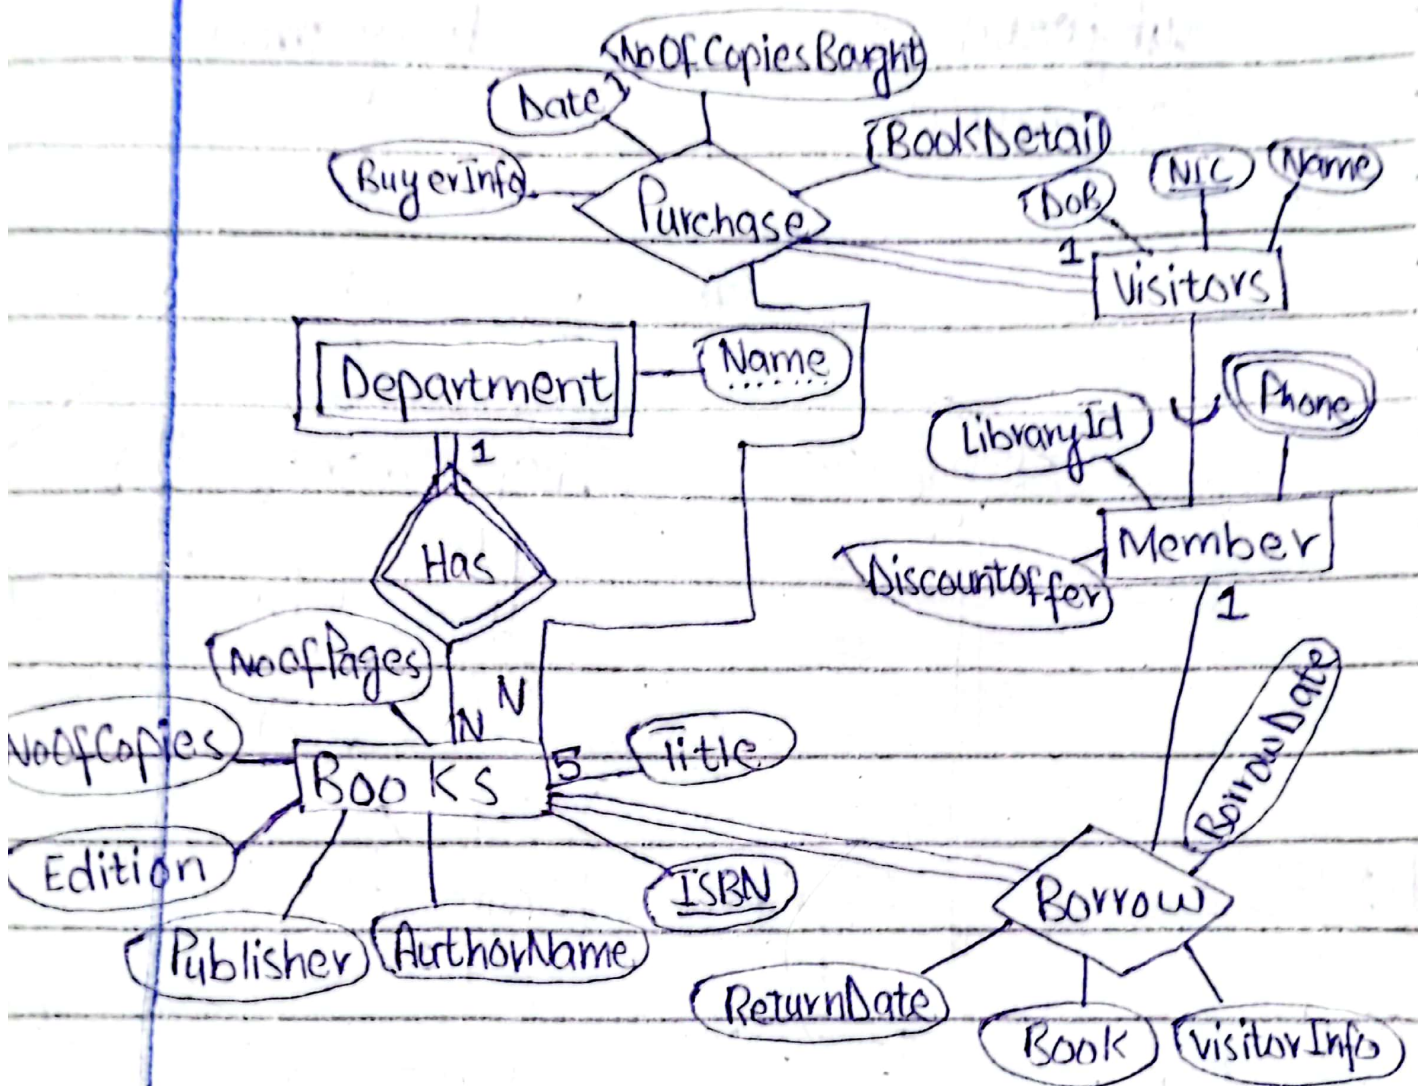 NoOfCopiesBought
Date
BookDetail
BuyerInfo
Purchase
NIC
Name
DOB
1
Visitors
Department
Name
1
Phone
LibraryId
Has
Member
DiscountOffer
1
NoOfPages
N
N
BorrowDate
NoOfCopies
Title
5
Books
Edition
ISBN
Borrow
Publisher
AuthorName
ReturnDate
Book
visitorInfo